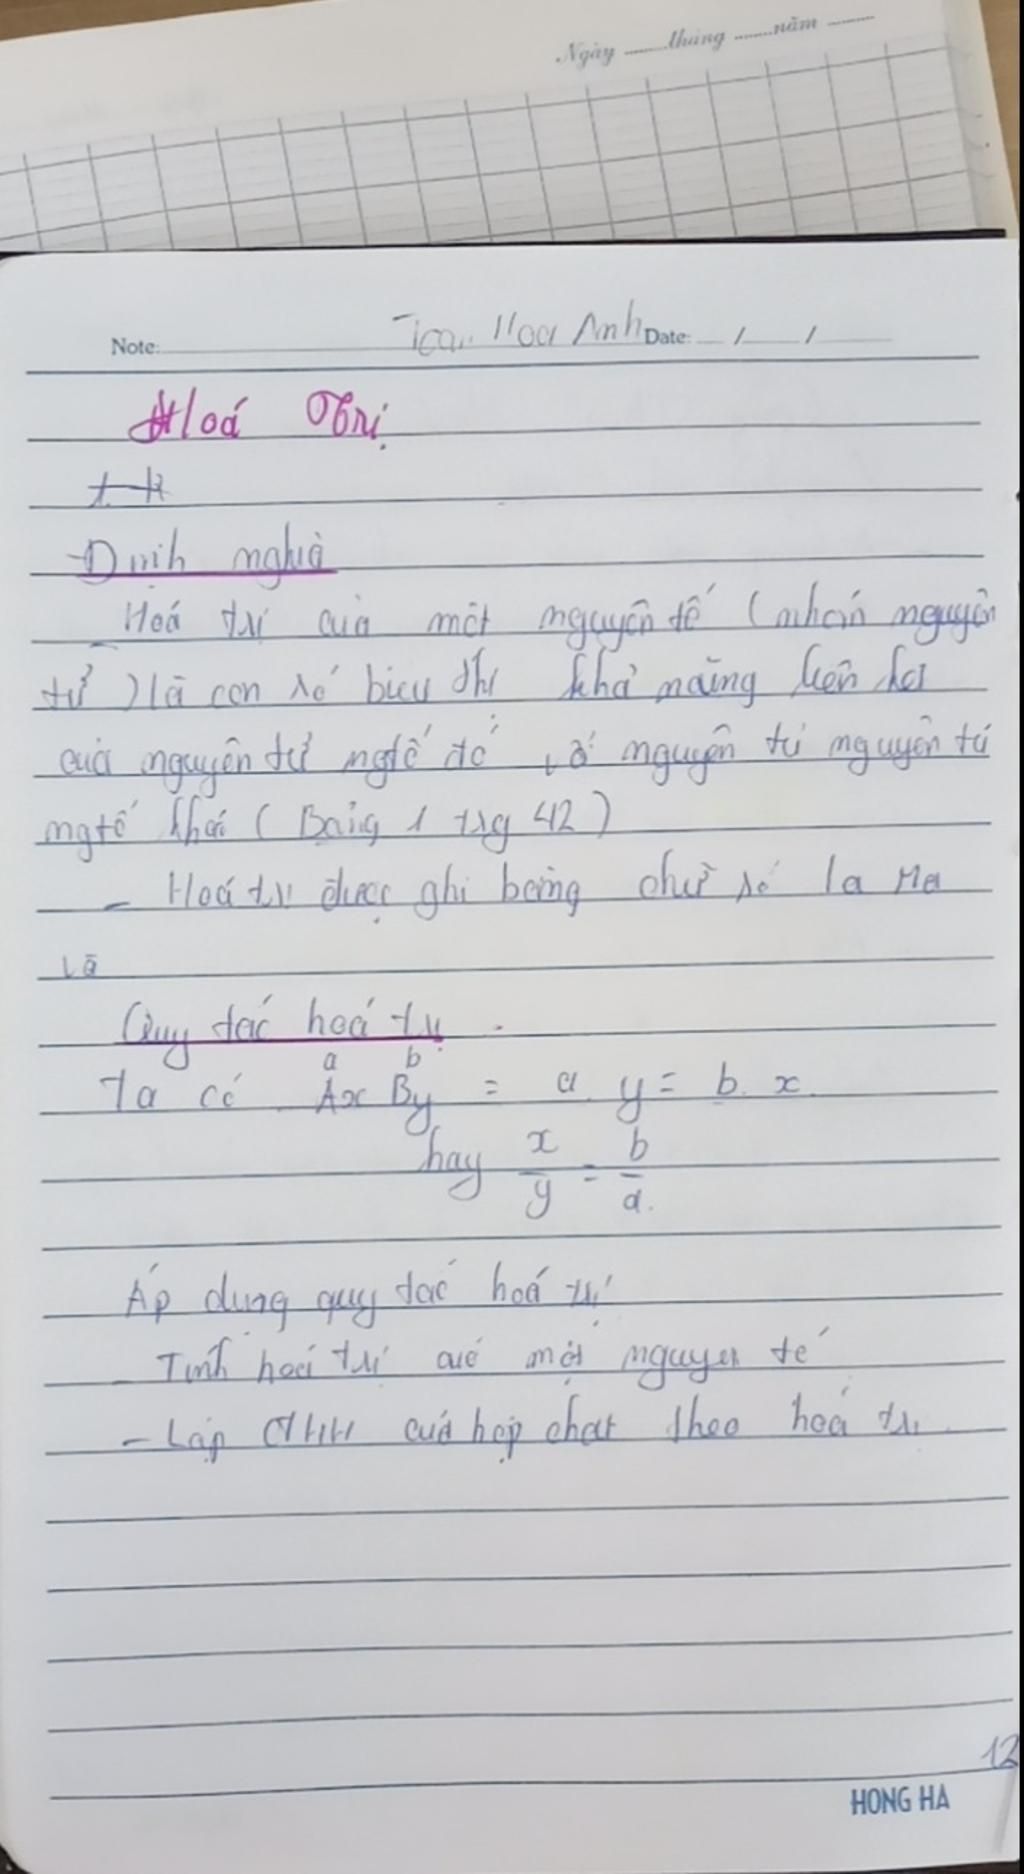 Ngày ........tháng ........năm ........
Note: Toán Hoá Anh Date: / /
Hoá Trị
Định nghĩa
- Hoá trị của một nguyên tố (nhóm nguyên
tử) là con số biểu thị khả năng liên kết
của nguyên tử ngtố đó với nguyên tử nguyên tử
ngtố khác (Bảng 1 trg 42)
- Hoá trị được ghi bằng chữ số la Ma
Và
Quy tắc hoá trị
a b
Ta có AxBy = a.y = b.x
hay x/y = b/a.
Áp dụng quy tắc hoá trị
- Tính hoá trị của một nguyên tố
- Lập CTHH của hợp chất theo hoá trị
12
HONG HA